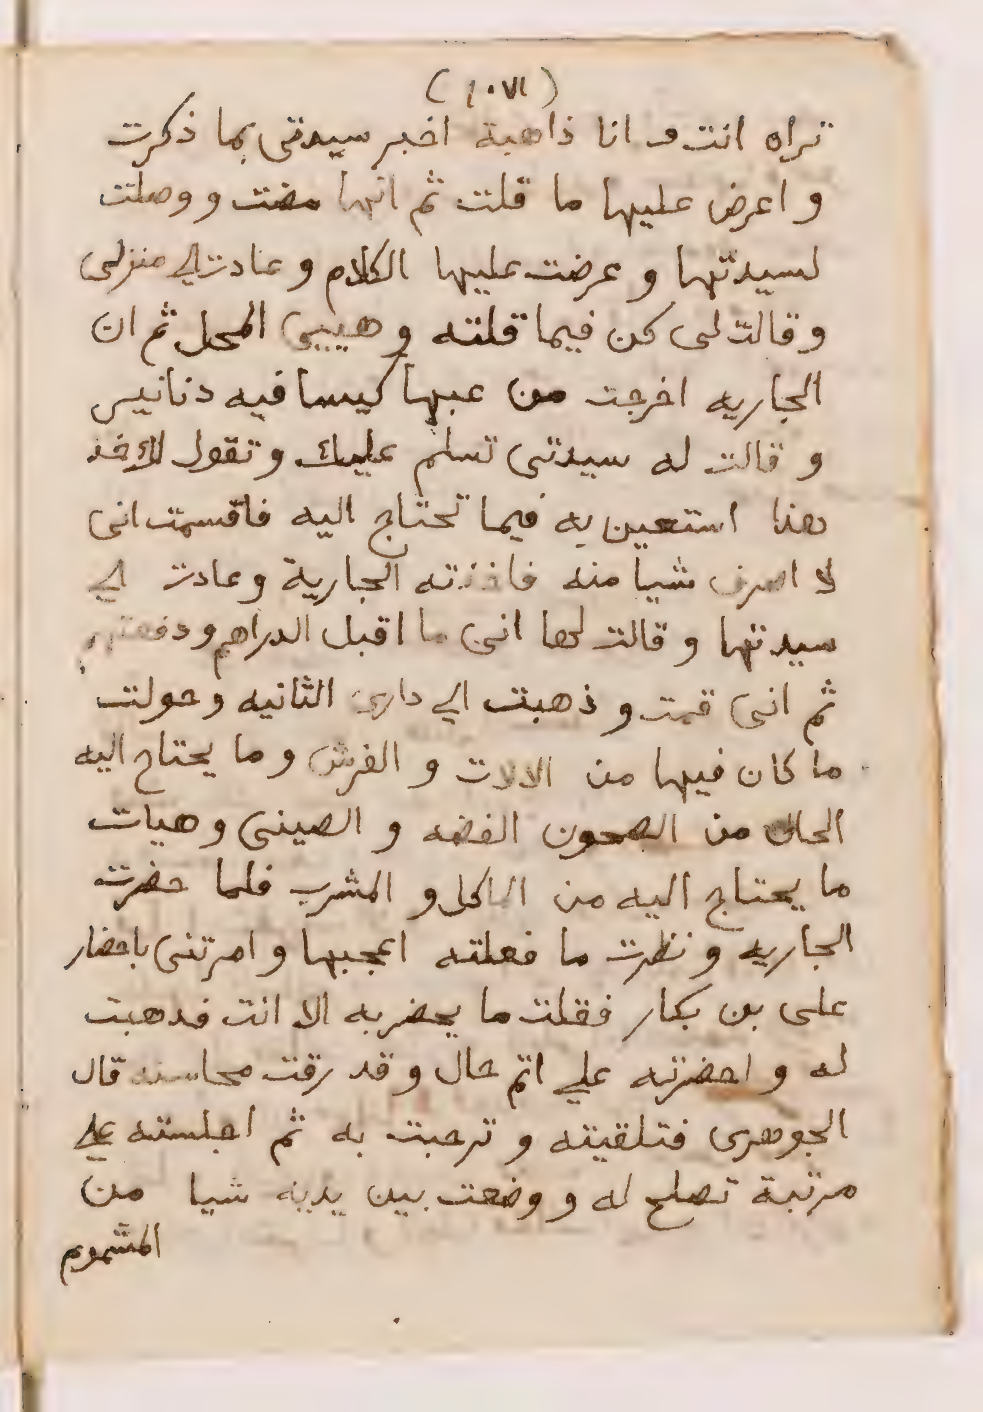 تراه انت و انا ذاهبة اخبر سيدتى بما ذكرت
و اعرض عليها ما قلت ثم انها مضت و وصلت
لسيدتها و عرضت عليها الكلام و عادت الي منزلى
و قالت لى كن فيما قلته و هيىى المحل ثم ان
الجاريه اخرجت من عبها كيسا فيه دنانير
و قالت له سيدتى تسلم عليك و تقول لك خذ
هذا استعين به فيما تحتاج اليه فاقسمت انى
لا اصرف شيا منه فاخذته الجارية و عادت الي
سيدتها و قالت لها انى ما اقبل الدراهم و دفعتهم
ثم انى قمت و ذهبت الي دارى الثانيه و حولت
ما كان فيها من الالات و الفرش و ما يحتاج اليه
الحال من الصحون الفضه و الصينى و هيات
ما يحتاج اليه من الماكل و المشرب فلما حضرت
الجاريه و نظرت ما فعلته اعجبها و امرتنى باحضار
على بن بكار فقلت ما يحضر به الا انت فذهبت
له و احضرته علي اتم حال و قد رقت محاسنه قال
الجوهرى فتلقيته و ترحبت به ثم اجلسته علي
مرتبة تصلح له و وضعت بين يديه شيا من
المشموم